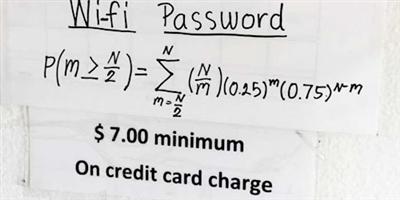 Wi-fi Password
P(m ≥ N/2) = ∑_{m=N/2}^{N} (N/m)(0.25)^m(0.75)^{N-m}
$ 7.00 minimum
On credit card charge